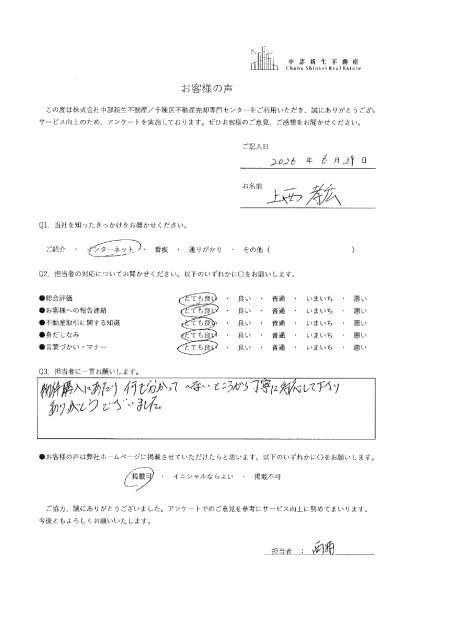 中部新生不動産
Chubu Shinsei Real Estate
お客様の声
この度は株式会社中部新生不動産/千種区不動産売却専門センターをご利用いただき、誠にありがとうござ
サービス向上のため、アンケートを実施しております。ぜひお客様のご意見、ご感想をお聞かせください。
ご記入日
2026 年 6 月 29 日
お名前
上西 孝広
Q1. 当社を知ったきっかけをお聞かせください。
ご紹介 ・ インターネット ・ 看板 ・ 通りがかり ・ その他 ( )
Q2. 担当者の対応についてお聞かせください。以下のいずれかに○をお願いします。
●総合評価 とても良い ・ 良い ・ 普通 ・ いまいち ・ 悪い
●お客様への報告連絡 とても良い ・ 良い ・ 普通 ・ いまいち ・ 悪い
●不動産取引に関する知識 とても良い ・ 良い ・ 普通 ・ いまいち ・ 悪い
●身だしなみ とても良い ・ 良い ・ 普通 ・ いまいち ・ 悪い
●言葉づかい・マナー とても良い ・ 良い ・ 普通 ・ いまいち ・ 悪い
Q3. 担当者に一言お願いします。
物件購入にあたり 何も分かって いないところから丁寧に対応して下さり
ありがとうございました。
●お客様の声は弊社ホームページに掲載させていただけたらと思います。以下のいずれかに○をお願いします。
掲載可 ・ イニシャルならよい ・ 掲載不可
ご協力、誠にありがとうございました。アンケートでのご意見を参考にサービス向上に努めてまいります。
今後ともよろしくお願いいたします。
担当者 :